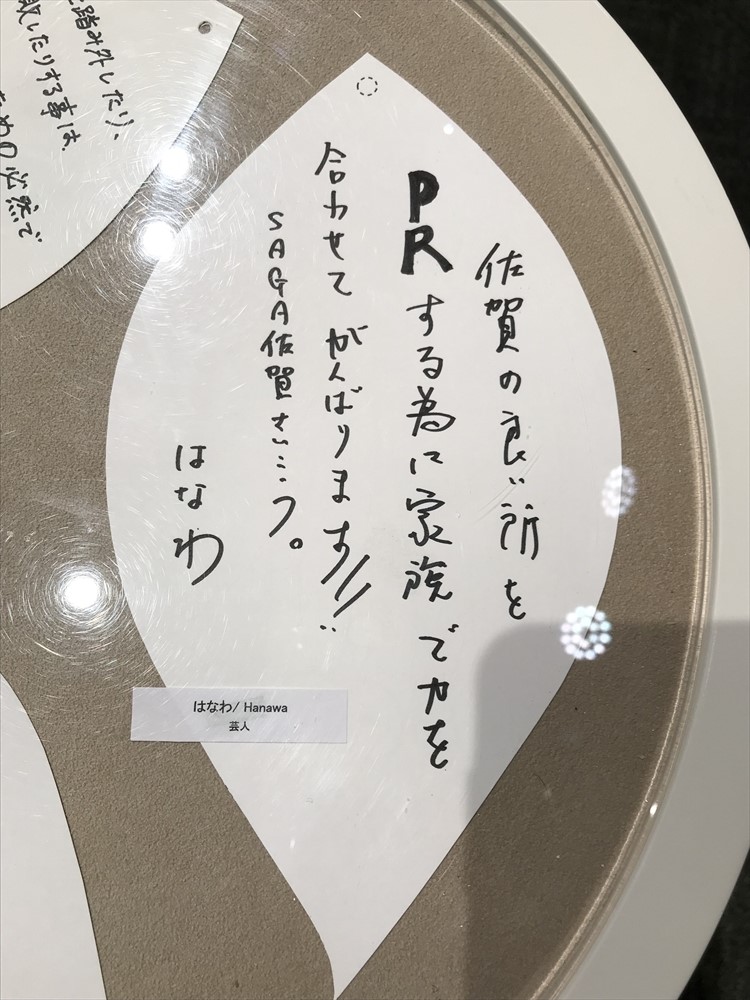 佐賀の良い所を
PRする為に家族で力を
合わせてがんばります!!
SAGA佐賀さいこう。
はなわ
はなわ/ Hanawa
芸人
踏み外したり、
したりする事は、
めの必然で